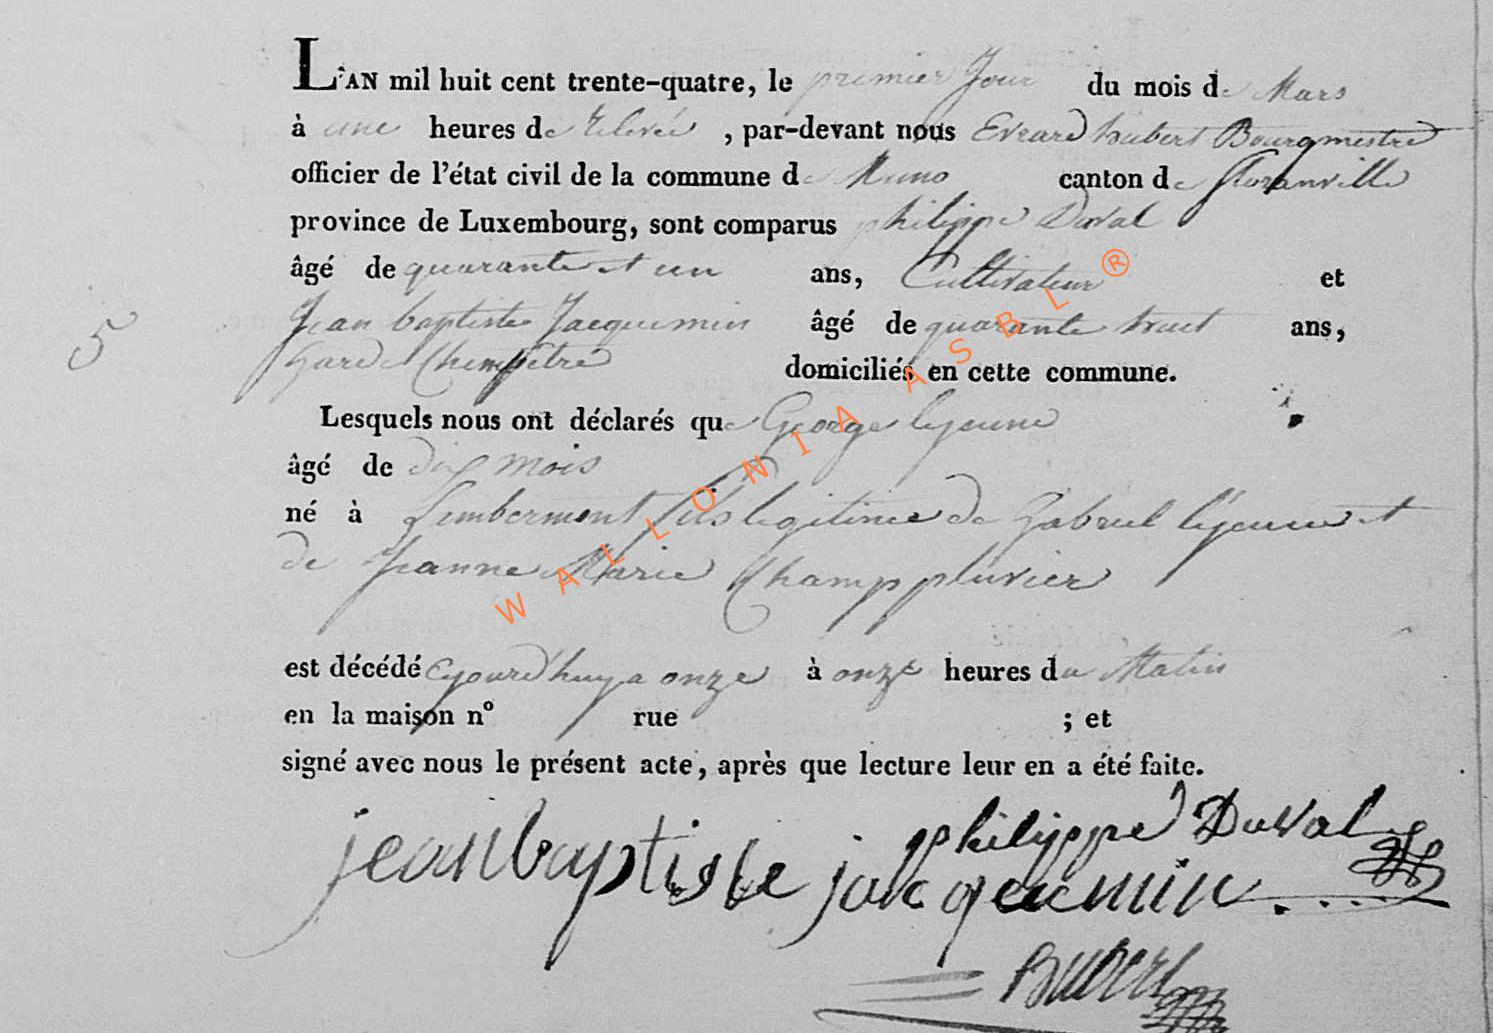 L'AN mil huit cent trente-quatre, le premier Jour du mois de Mars
à une heures de Relevée, par-devant nous Evrard hubert Bourgmestre
officier de l'état civil de la commune de Muno canton de Florenville
province de Luxembourg, sont comparus philippe Duval
âgé de quarante et un ans, Cultivateur et
Jean baptiste Jacquemin âgé de quarante huit ans,
5
Garde Champêtre domiciliés en cette commune.
Lesquels nous ont déclarés que George lejeune
âgé de dix mois
né à Lambermont fils legitime de Gabriel lejeune et
de Jeanne Marie Champpluvier
est décédé cejourd'huy a onze à onze heures du Matin
en la maison n° rue ; et
signé avec nous le présent acte, après que lecture leur en a été faite.
philippe Duval
jean baptiste jacquemin
Hubert
WALLONIA ASBL ®